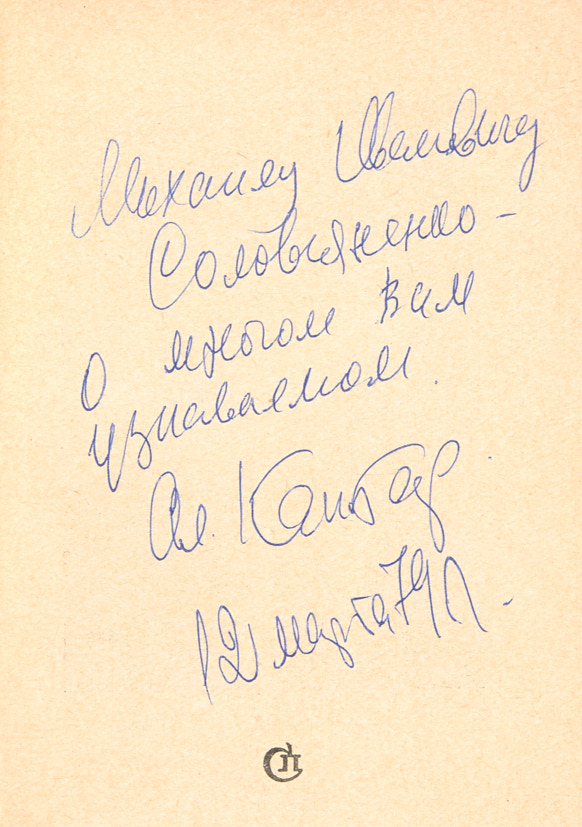 Михаилу Ивановичу
Соловьяненко –
о многом вам
узнаваемом.
Ал. Кантор
12 марта 79 г.
СП